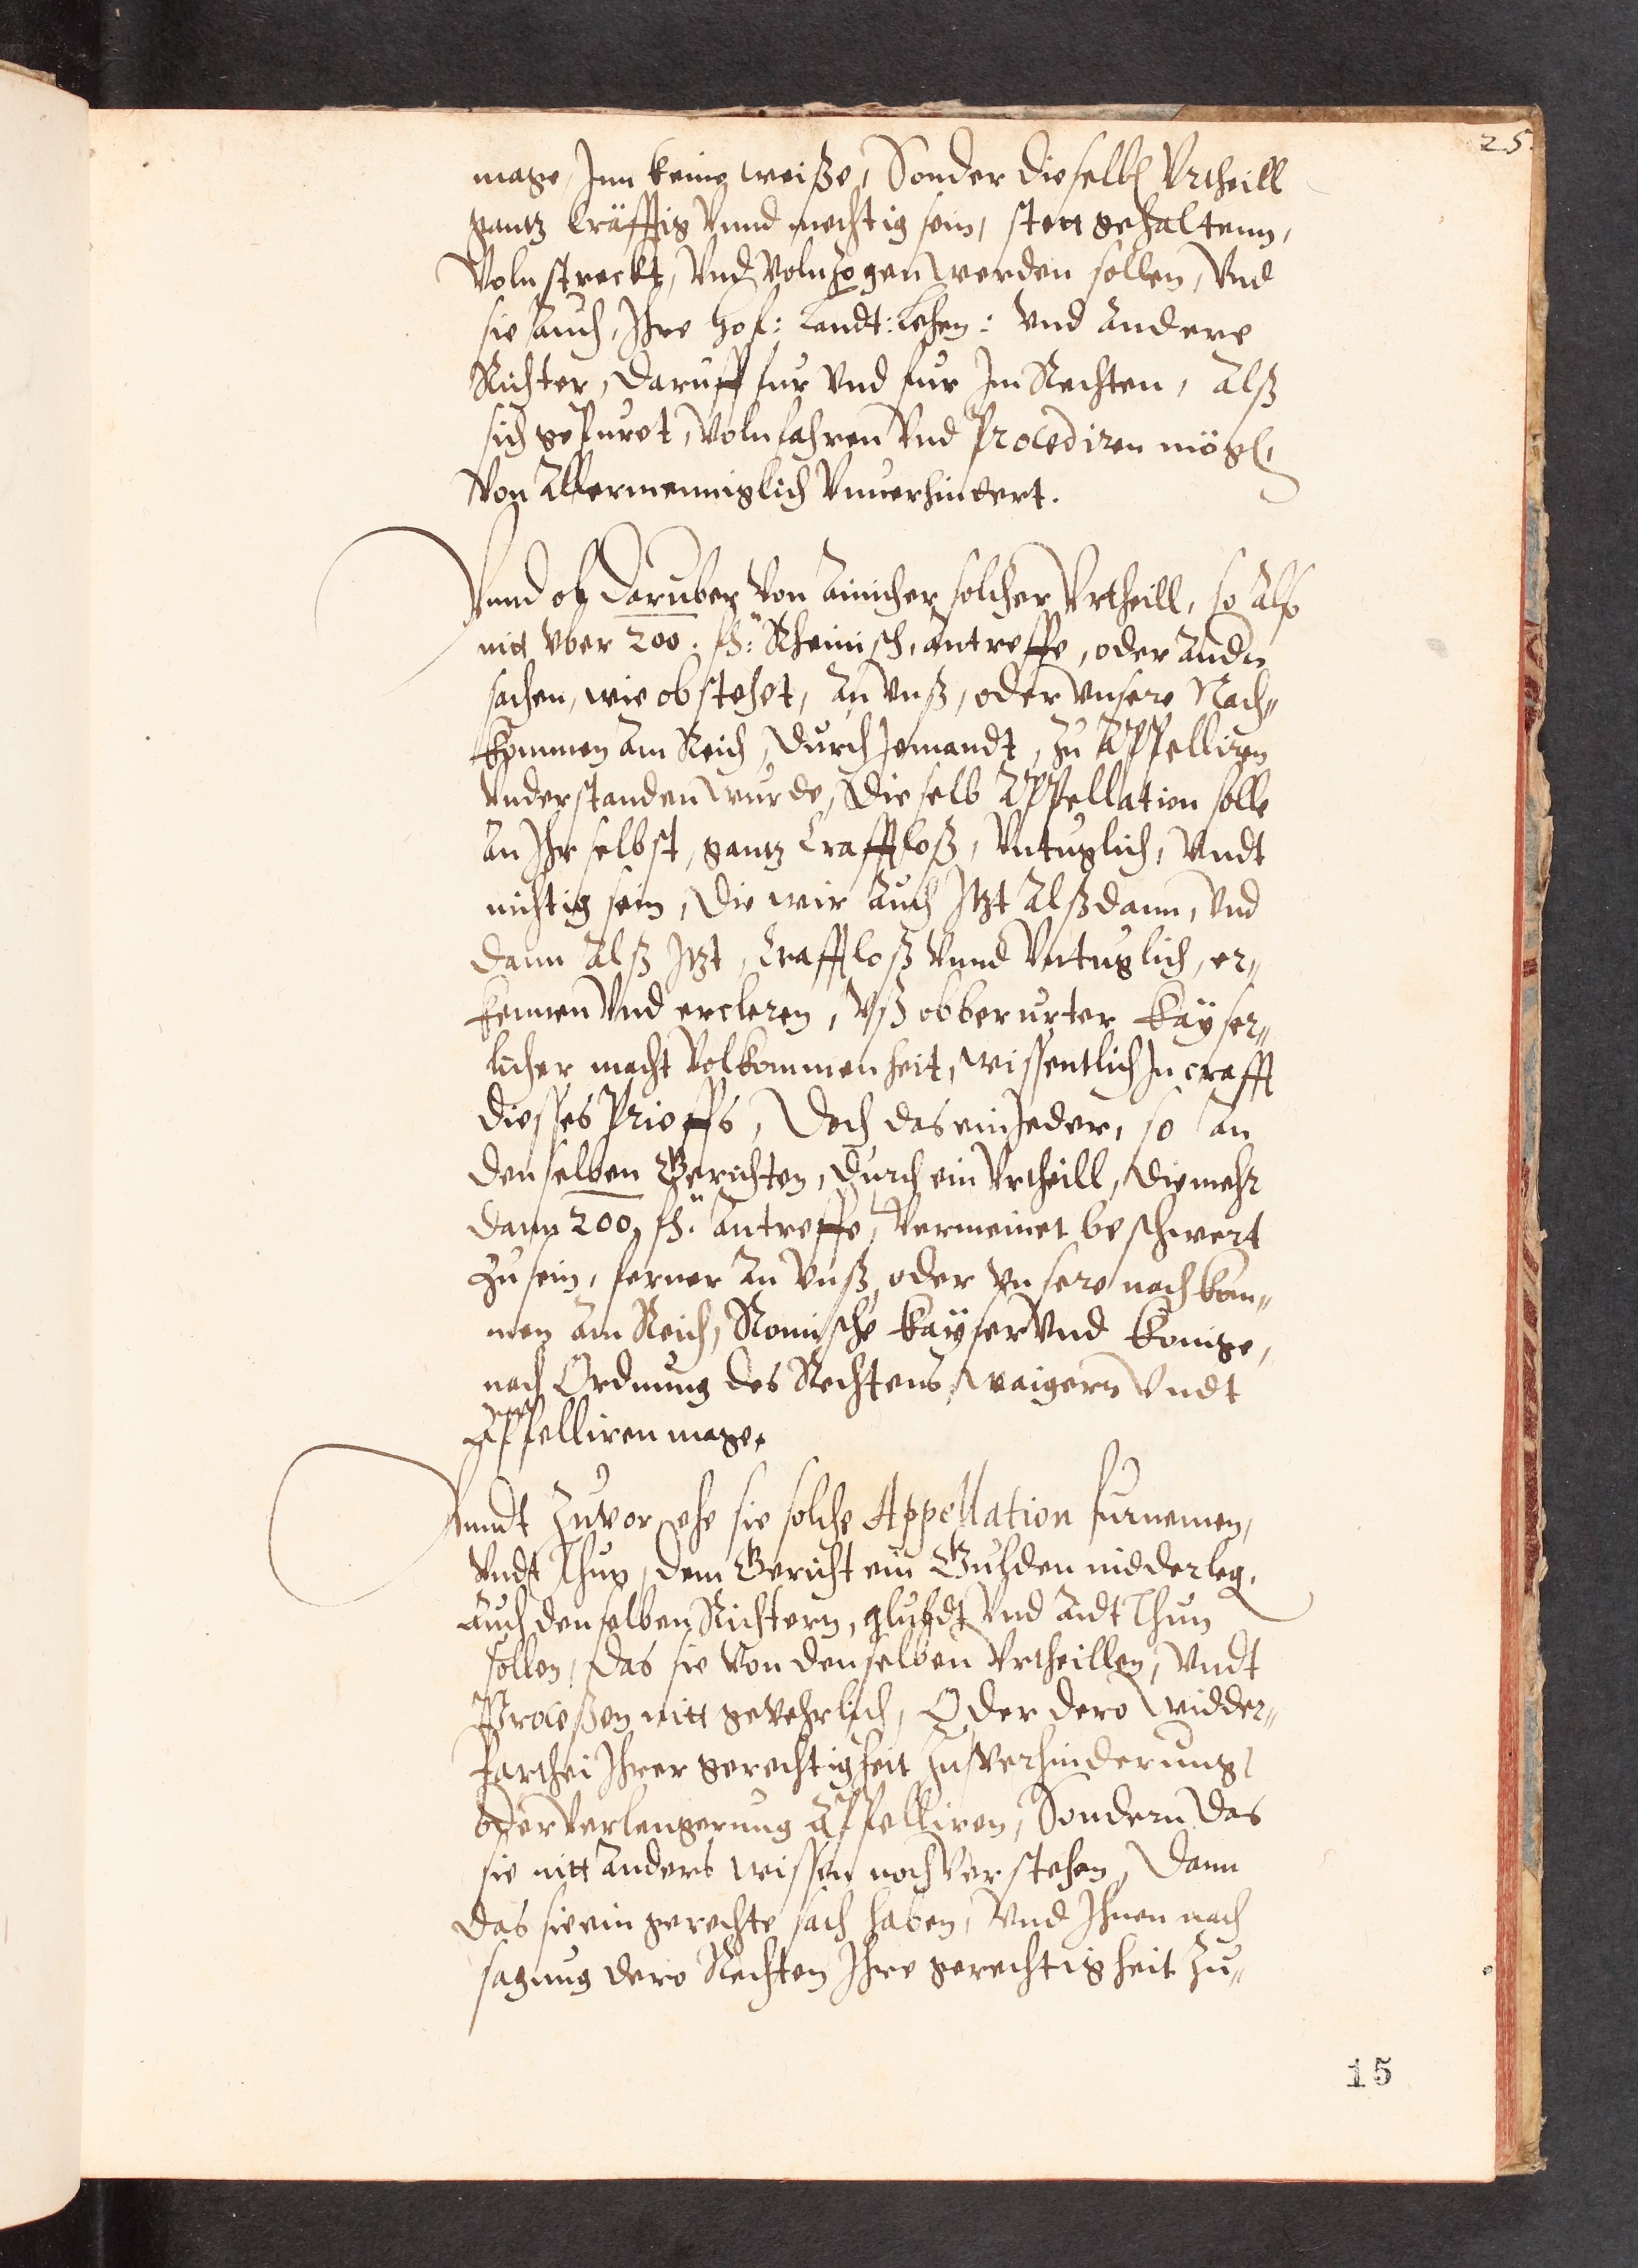 25.
mage, Inn keine weiße, Sonder dieselb Vrtheill
gantz kräfftig vnnd mechtig sein, stett gehaltenn,
Volnstreckt, Vnd Volnzogen werden sollen, Vnd
sie Auch, Ihre Hof: Landt: Lehen: Vnd Andere
Richter, daruff fur Vnd fur Im Rechten, Alß
sich gepuret, Volnfahren Vnd Procediren mögen,
Von Allermenniglich Vnuerhindert.
Vnnd ob daruber Von Ainicher solcher Vrtheill, so Alß
nitt vber 200. fl: Rheinisch, Antreffe, oder Andn
sachen, wie obstehet, An Vnß, oder Vnsere Nach„
kommen Am Reich, durch Jemandt, zu Appelliren
Vnderstanden wurde, dieselb Appellation solle
An Ihr selbst, gantz Crafftloß, Vntuglich, Vndt
nichtig sein, die wir Auch Itzt Alßdann, Vnd
dann Alß Itzt, Crafftloß Vnnd Vntuglich, er„
kennen Vnd ercleren, Vß obberurter Kayser„
licher macht Volkommenheit, wissentlich In crafft
diesses Prieffs, doch das ein Jeder, so An
denselben Gerichten, durch ein Vrtheill, die mehr
dann 200. fl. Antreffe, Vermeinet beschwert
zu sein, ferner An Vnß, oder Vnsere nachkom„
men Am Reich, Romische Kayser Vnd Konige,
nach Ordnung des Rechtens, waigern Vndt
Appelliren mage.
Vnndt Zuvor, ehe sie solche Appellation furnemen,
Vndt Thun, dem Gericht ein Gulden nidderleg,
Auch denselben Richtern, glubdt Vnd Aidt Thun
sollen, das sie Von denselben Vrtheillen, Vndt
Processen nitt gevehrlich, Oder dero widder„
parthei Ihrer gerechtigkeit Zu Verhinderung,
oder Verlengerung Appelliren, Sondern das
sie nitt Anders wissen noch Verstehen, dann
das sie ein gerechte sach haben, Vnd Ihnen nach
sagung dero Rechten Ihre gerechtigkeit Zu„
15